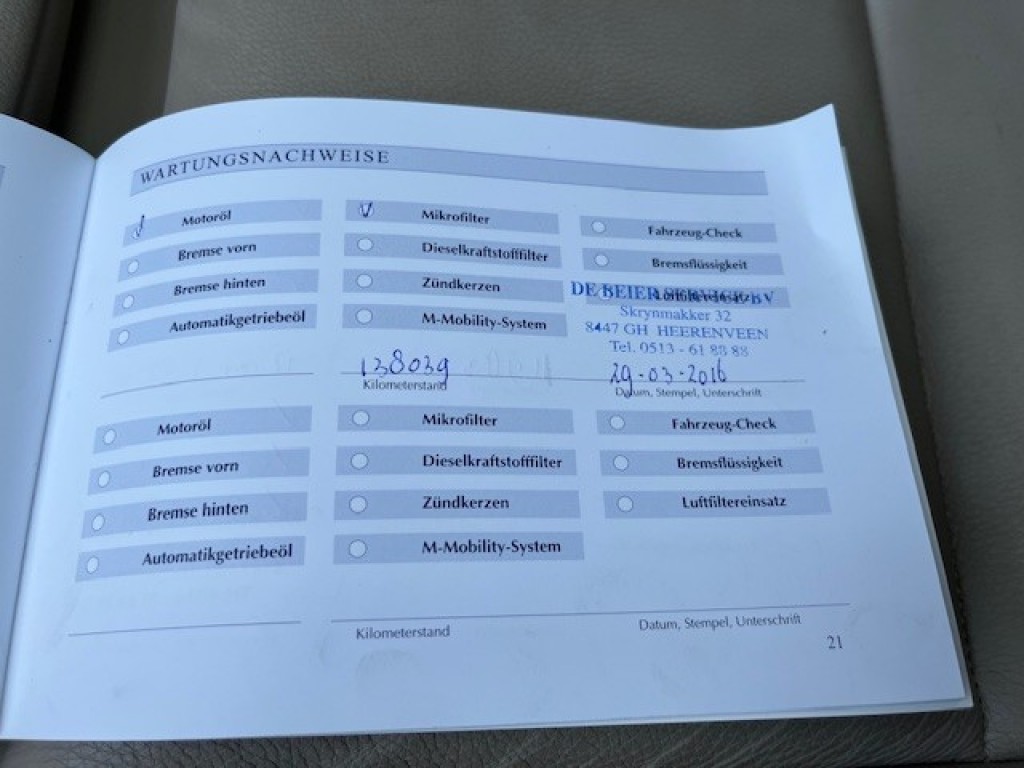 WARTUNGSNACHWEISE
Motoröl Mikrofilter Fahrzeug-Check
Bremse vorn Dieselkraftstofffilter Bremsflüssigkeit
Bremse hinten Zündkerzen Luftfiltereinsatz
DE BEIER SERVICE BV
Automatikgetriebeöl M-Mobility-System
Skrynmakker 32
8447 GH HEERENVEEN
Tel. 0513 - 61 88 88
138039 29-03-2016
Kilometerstand Datum, Stempel, Unterschrift
Motoröl Mikrofilter Fahrzeug-Check
Bremse vorn Dieselkraftstofffilter Bremsflüssigkeit
Bremse hinten Zündkerzen Luftfiltereinsatz
Automatikgetriebeöl M-Mobility-System
Kilometerstand Datum, Stempel, Unterschrift
21